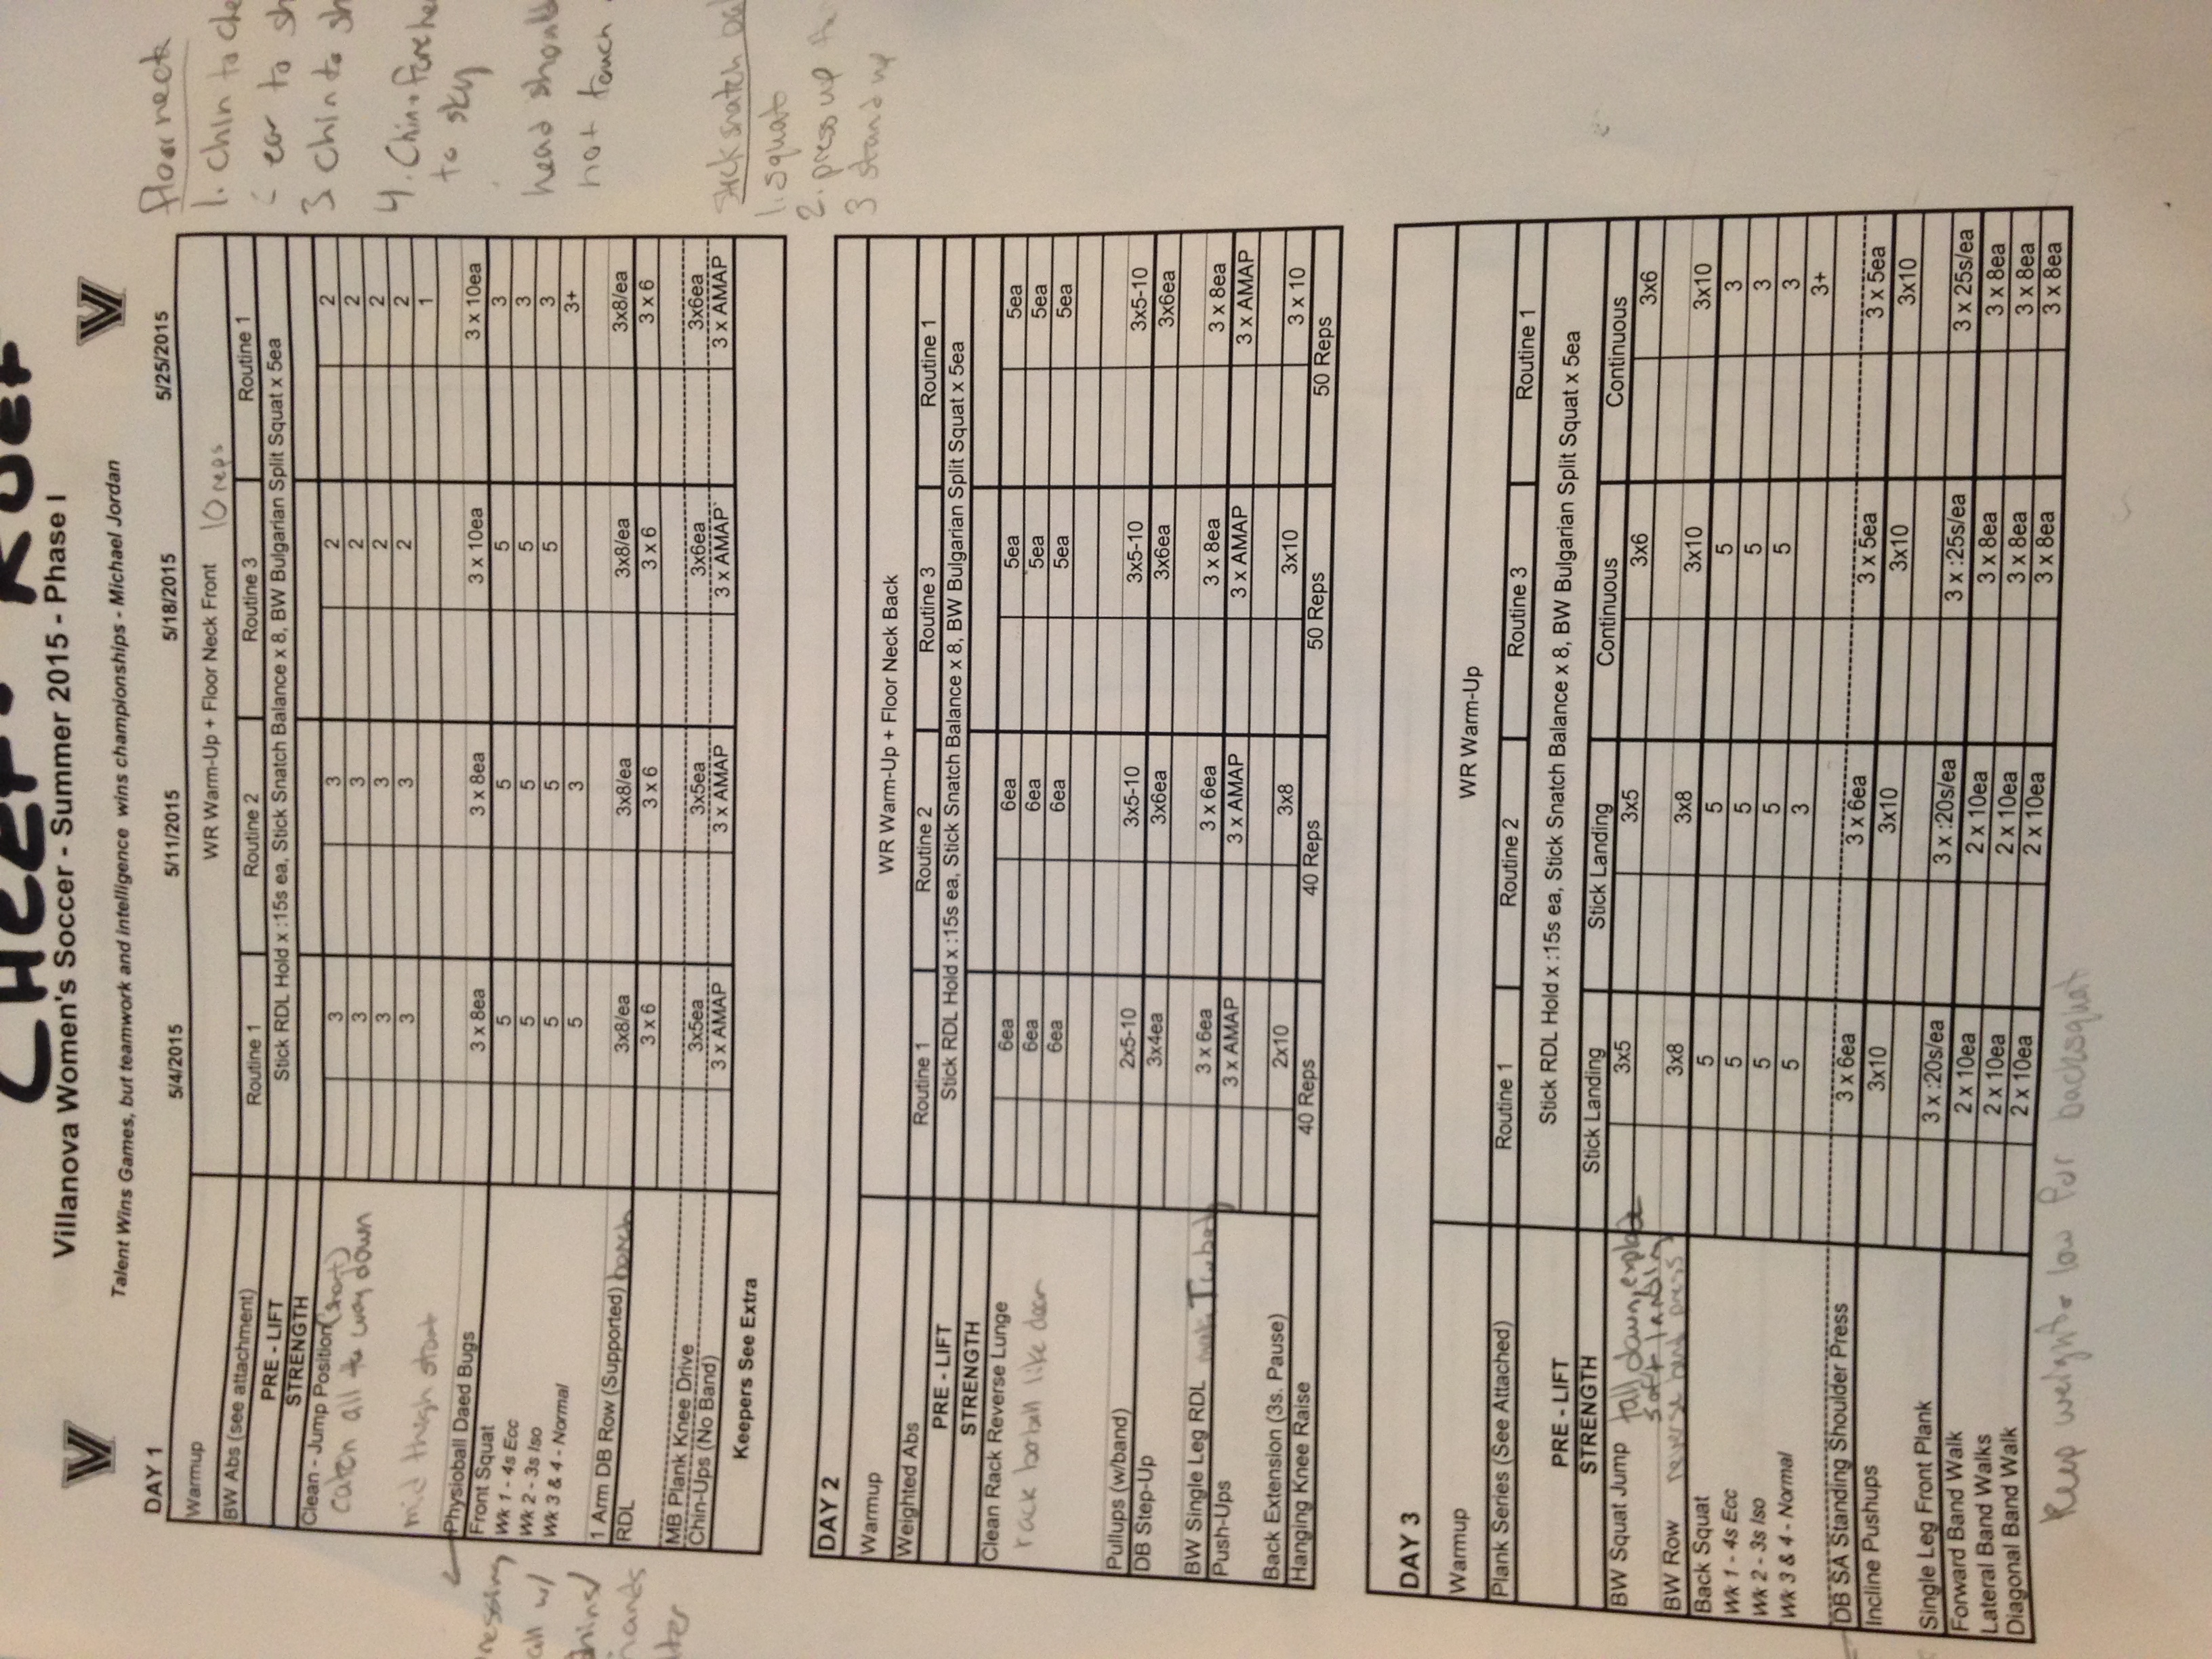 Villanova Women's Soccer - Summer 2015 - Phase I
Talent Wins Games, but teamwork and intelligence wins championships - Michael Jordan
DAY 1 5/4/2015 5/11/2015 5/18/2015 5/25/2015
Warmup WR Warm-Up + Floor Neck Front 10 reps
BW Abs (see attachment) Routine 1 Routine 2 Routine 3 Routine 1
PRE - LIFT Stick RDL Hold x :15s ea, Stick Snatch Balance x 8, BW Bulgarian Split Squat x 5ea
STRENGTH
Clean - Jump Position (start) 3 3 2 2
catch all the way down 3 3 2 2
3 3 2 2
mid thigh start 3 3 2 2
1
Physioball Daed Bugs 3 x 8ea 3 x 8ea 3 x 10ea 3 x 10ea
Front Squat 5 5 5 3
Wk 1 - 4s Ecc 5 5 5 3
Wk 2 - 3s Iso 5 5 5 3
Wk 3 & 4 - Normal 5 3 3+
1 Arm DB Row (Supported) bench 3x8/ea 3x8/ea 3x8/ea 3x8/ea
RDL 3 x 6 3 x 6 3 x 6 3 x 6
MB Plank Knee Drive 3x5ea 3x5ea 3x6ea 3x6ea
Chin-Ups (No Band) 3 x AMAP 3 x AMAP 3 x AMAP 3 x AMAP
Keepers See Extra
floor neck
1. chin to
ear to
3 chin to
4. Chin + 
to sky
head should
not touch
stick snatch
1. squat
2. press up
3 stand up
all w/
hands
DAY 2
Warmup WR Warm-Up + Floor Neck Back
Weighted Abs Routine 1 Routine 2 Routine 3 Routine 1
PRE - LIFT Stick RDL Hold x :15s ea, Stick Snatch Balance x 8, BW Bulgarian Split Squat x 5ea
STRENGTH
Clean Rack Reverse Lunge 6ea 6ea 5ea 5ea
rack barbell like clean 6ea 6ea 5ea 5ea
6ea 6ea 5ea 5ea
Pullups (w/band) 2x5-10 3x5-10 3x5-10 3x5-10
DB Step-Up 3x4ea 3x6ea 3x6ea 3x6ea
BW Single Leg RDL make T w/ body 3 x 6ea 3 x 6ea 3 x 8ea 3 x 8ea
Push-Ups 3 x AMAP 3 x AMAP 3 x AMAP 3 x AMAP
Back Extension (3s. Pause) 2x10 3x8 3x10 3 x 10
Hanging Knee Raise 40 Reps 40 Reps 50 Reps 50 Reps
DAY 3
Warmup WR Warm-Up
Plank Series (See Attached) Routine 1 Routine 2 Routine 3 Routine 1
PRE - LIFT Stick RDL Hold x :15s ea, Stick Snatch Balance x 8, BW Bulgarian Split Squat x 5ea
STRENGTH Stick Landing Stick Landing Continuous Continuous
BW Squat Jump fall down, explode 3x5 3x5 3x6 3x6
soft landing
BW Row reverse bench press 3x8 3x8 3x10 3x10
Back Squat 5 5 5 3
Wk 1 - 4s Ecc 5 5 5 3
Wk 2 - 3s Iso 5 5 5 3
Wk 3 & 4 - Normal 5 3 3+
DB SA Standing Shoulder Press 3 x 6ea 3 x 6ea 3 x 5ea 3 x 5ea
Incline Pushups 3x10 3x10 3x10 3x10
Single Leg Front Plank 3 x :20s/ea 3 x :20s/ea 3 x :25s/ea 3 x 25s/ea
Forward Band Walk 2 x 10ea 2 x 10ea 3 x 8ea 3 x 8ea
Lateral Band Walks 2 x 10ea 2 x 10ea 3 x 8ea 3 x 8ea
Diagonal Band Walk 2 x 10ea 2 x 10ea 3 x 8ea 3 x 8ea
Keep weight low for backsquat